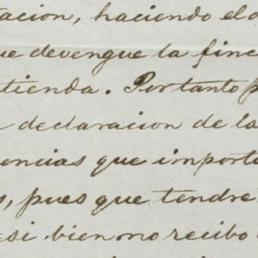 tacion, haciendo el
que devengue la finc
tienda. Por tanto p
declaracion de la
encias que import
s, pues que tendre
si bien no recibo